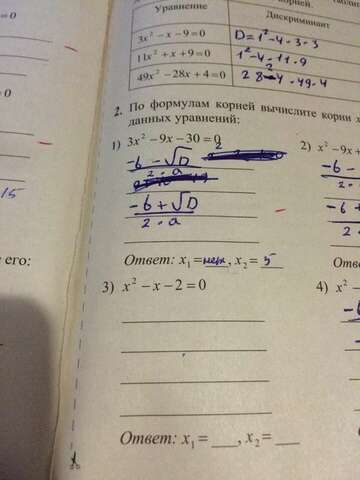 Уравнение
Дискриминант
3x² − x − 9 = 0
D = 1² - 4 · 3 · 3
11x² + x + 9 = 0
1² - 4 · 11 · 9
49x² − 28x + 4 = 0
28² - 4 · 49 · 4
= 0
2. По формулам корней вычислите корни
данных уравнений:
1) 3x² − 9x − 30 = 0
2) x² − 9x +
-b - √D
2 · a
-b + √D
2 · a
-b -
2.
-b +
2.
15
е его:
Ответ: x₁ = нет, x₂ = 5
Отве
3) x² − x − 2 = 0
4) x² −
Ответ: x₁ = ___, x₂ = ___